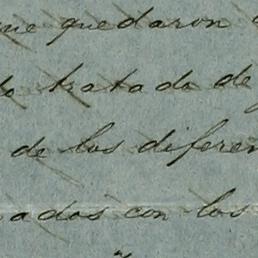 que quedaron
tratado de
de los diferen
ados con los